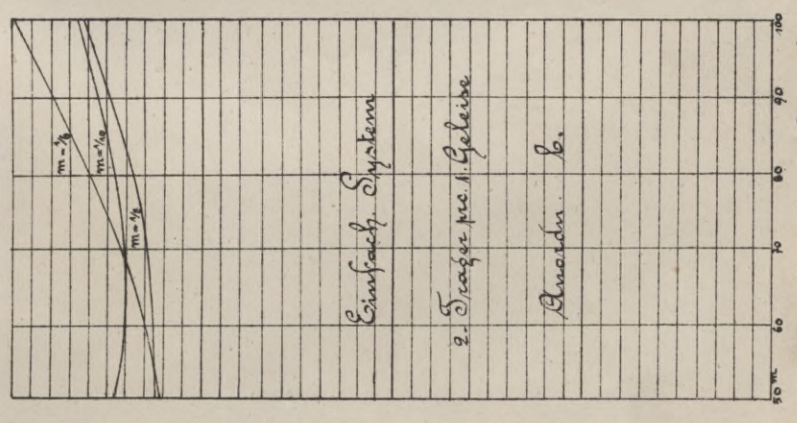 m=1/10
Einfach. System
2. Träger pro. 1. Geleise
Anordn. b.
50 m
60
70
80
90
100